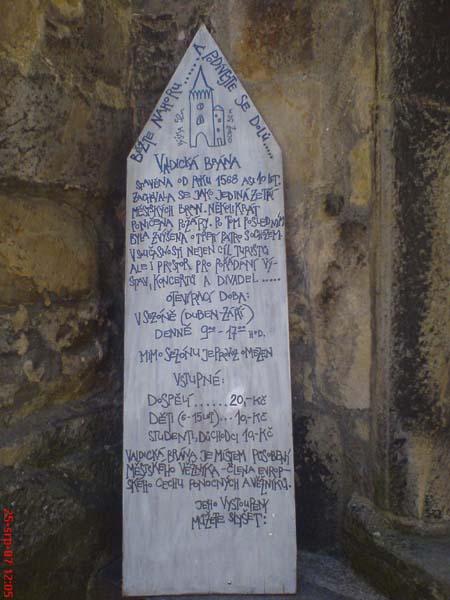 BĚŽTE NAHORU..... A PODÍVEJTE SE DOLŮ.....
VÝŠKA 52
VALDICKÁ BRÁNA
STAVĚNA OD ROKU 1568 ASI 10 LET.
ZACHOVALA SE JAKO JEDINÁ ZE TŘÍ
MĚSTSKÝCH BRAN. NĚKOLIKRÁT
PONIČENA POŽÁRY. PO TOM POSLEDNÍM
BYLA ZVÝŠENA O TŘETÍ PATRO S OCHOZEM.
V SOUČASNOSTI NEJEN CÍL TURISTŮ
ALE I PROSTOR PRO POŘÁDÁNÍ VÝ-
STAV, KONCERTŮ A DIVADEL.....
OTEVÍRACÍ DOBA:
V SEZÓNĚ (DUBEN-ZÁŘÍ)
DENNĚ 9 00 - 17 00 HOD.
MIMO SEZÓNU JE PROVOZ OMEZEN
VSTUPNÉ:
DOSPĚLÍ......20,-KČ
DĚTI (6-15 LET)...10,-KČ
STUDENTI, DŮCHODCI 10,-KČ
VALDICKÁ BRÁNA JE MÍSTEM PŮSOBENÍ
MĚSTSKÉHO VĚŽNÍKA - ČLENA EVROP-
SKÉHO CECHU PONOCNÝCH A VĚŽNÍKŮ.
JEHO VYSTOUPENÍ
MŮŽETE SLYŠET:
25-srp-07 12:05